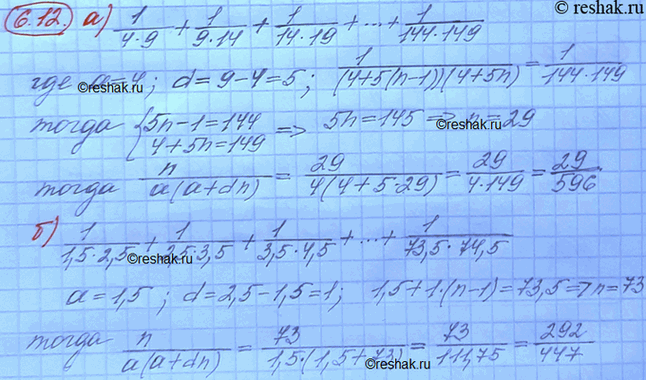 © reshak.ru
6.12. а) 1/(4·9) + 1/(9·14) + 1/(14·19) + ... + 1/(144·149)
где a=4; d=9-4=5; 1/((4+5(n-1))(4+5n) = 1/(144·149)
©reshak.ru
©reshak.ru
тогда {5n-1=144 4+5n=149 => 5n=145 => n=29
©reshak.ru
тогда n/(a(a+dn)) = 29/(4(4+5·29)) = 29/(4·149) = 29/596.
б) 1/(1,5·2,5) + 1/(2,5·3,5) + 1/(3,5·4,5) + ... + 1/(73,5·74,5)
©reshak.ru
a=1,5; d=2,5-1,5=1; 1,5+1·(n-1)=73,5=>n=73
тогда n/(a(a+dn)) = 73/(1,5·(1,5+73)) = 73/111,75 = 292/447